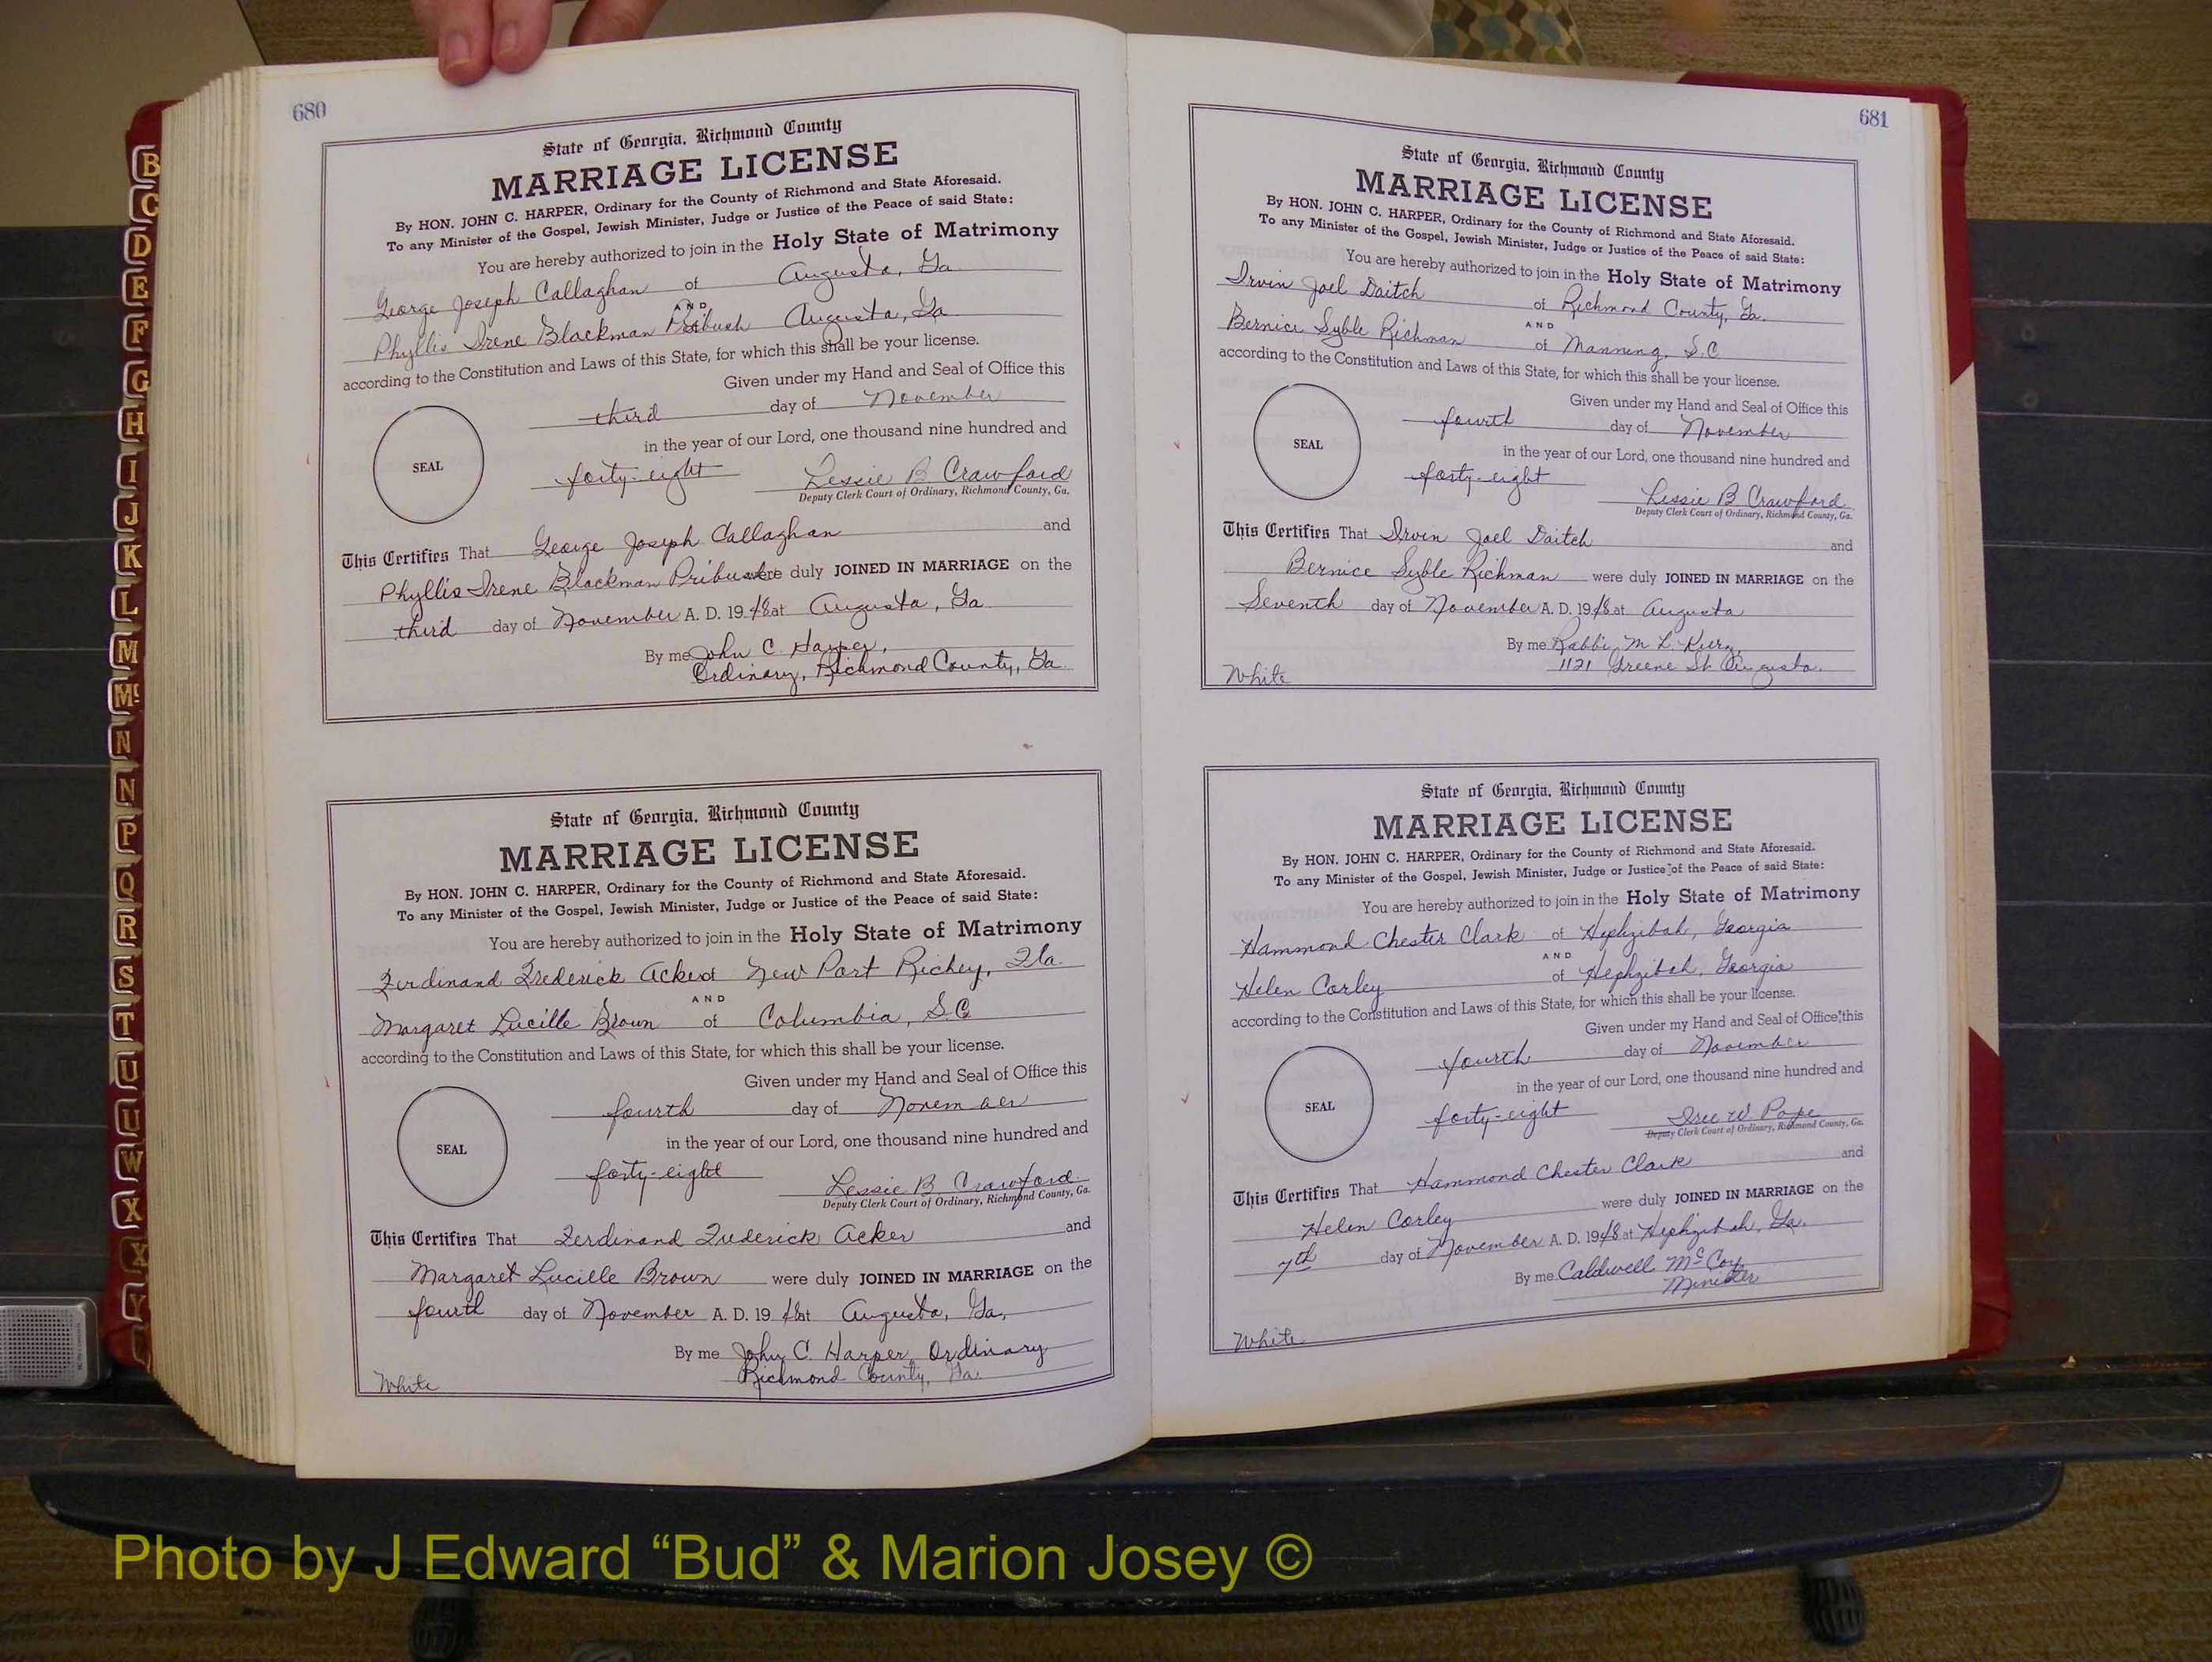 680
State of Georgia, Richmond County
MARRIAGE LICENSE
By HON. JOHN C. HARPER, Ordinary for the County of Richmond and State Aforesaid.
To any Minister of the Gospel, Jewish Minister, Judge or Justice of the Peace of said State:
You are hereby authorized to join in the Holy State of Matrimony
George Joseph Callaghan of Augusta, Ga
AND
Phyllis Irene Blackman Pribush Augusta, Ga
according to the Constitution and Laws of this State, for which this shall be your license.
Given under my Hand and Seal of Office this
third day of November
in the year of our Lord, one thousand nine hundred and
SEAL
forty-eight Lessie B Crawford
Deputy Clerk Court of Ordinary, Richmond County, Ga.
This Certifies That George Joseph Callaghan and
Phyllis Irene Blackman Pribush were duly JOINED IN MARRIAGE on the
third day of November A. D. 1948 at Augusta, Ga
By me John C. Harper,
Ordinary, Richmond County, Ga.
State of Georgia, Richmond County
MARRIAGE LICENSE
By HON. JOHN C. HARPER, Ordinary for the County of Richmond and State Aforesaid.
To any Minister of the Gospel, Jewish Minister, Judge or Justice of the Peace of said State:
You are hereby authorized to join in the Holy State of Matrimony
Ferdinand Frederick Acker of New Port Richey, Fla.
AND
Margaret Lucille Brown of Columbia, S.C.
according to the Constitution and Laws of this State, for which this shall be your license.
Given under my Hand and Seal of Office this
fourth day of November
in the year of our Lord, one thousand nine hundred and
SEAL
forty-eight Lessie B Crawford
Deputy Clerk Court of Ordinary, Richmond County, Ga.
This Certifies That Ferdinand Frederick Acker and
Margaret Lucille Brown were duly JOINED IN MARRIAGE on the
fourth day of November A. D. 1948 at Augusta, Ga,
By me John C. Harper Ordinary
Richmond County, Ga.
White
681
State of Georgia, Richmond County
MARRIAGE LICENSE
By HON. JOHN C. HARPER, Ordinary for the County of Richmond and State Aforesaid.
To any Minister of the Gospel, Jewish Minister, Judge or Justice of the Peace of said State:
You are hereby authorized to join in the Holy State of Matrimony
Irvin Joel Daitch of Richmond County, Ga.
AND
Bernice Syble Richman of Manning, S.C
according to the Constitution and Laws of this State, for which this shall be your license.
Given under my Hand and Seal of Office this
fourth day of November
in the year of our Lord, one thousand nine hundred and
SEAL
forty-eight Lessie B Crawford
Deputy Clerk Court of Ordinary, Richmond County, Ga.
This Certifies That Irvin Joel Daitch and
Bernice Syble Richman were duly JOINED IN MARRIAGE on the
Seventh day of November A. D. 1948 at Augusta
By me Rabbi M L
1121 Greene St Augusta.
White
State of Georgia, Richmond County
MARRIAGE LICENSE
By HON. JOHN C. HARPER, Ordinary for the County of Richmond and State Aforesaid.
To any Minister of the Gospel, Jewish Minister, Judge or Justice of the Peace of said State:
You are hereby authorized to join in the Holy State of Matrimony
Hammond Chester Clark of Hephzibah, Georgia
AND
Helen Corley of Hephzibah, Georgia
according to the Constitution and Laws of this State, for which this shall be your license.
Given under my Hand and Seal of Office this
fourth day of November
in the year of our Lord, one thousand nine hundred and
SEAL
forty-eight W Pope
Deputy Clerk Court of Ordinary, Richmond County, Ga.
This Certifies That Hammond Chester Clark and
Helen Corley were duly JOINED IN MARRIAGE on the
7th day of November A. D. 1948 at Hephzibah, Ga.
By me Caldwell McCoy
Minister
White
B
C
D
E
F
G
H
I
J
K
L
M
Mc
N
N
P
Q
R
S
T
U
U
W
X
X
Y
Photo by J Edward “Bud” & Marion Josey ©